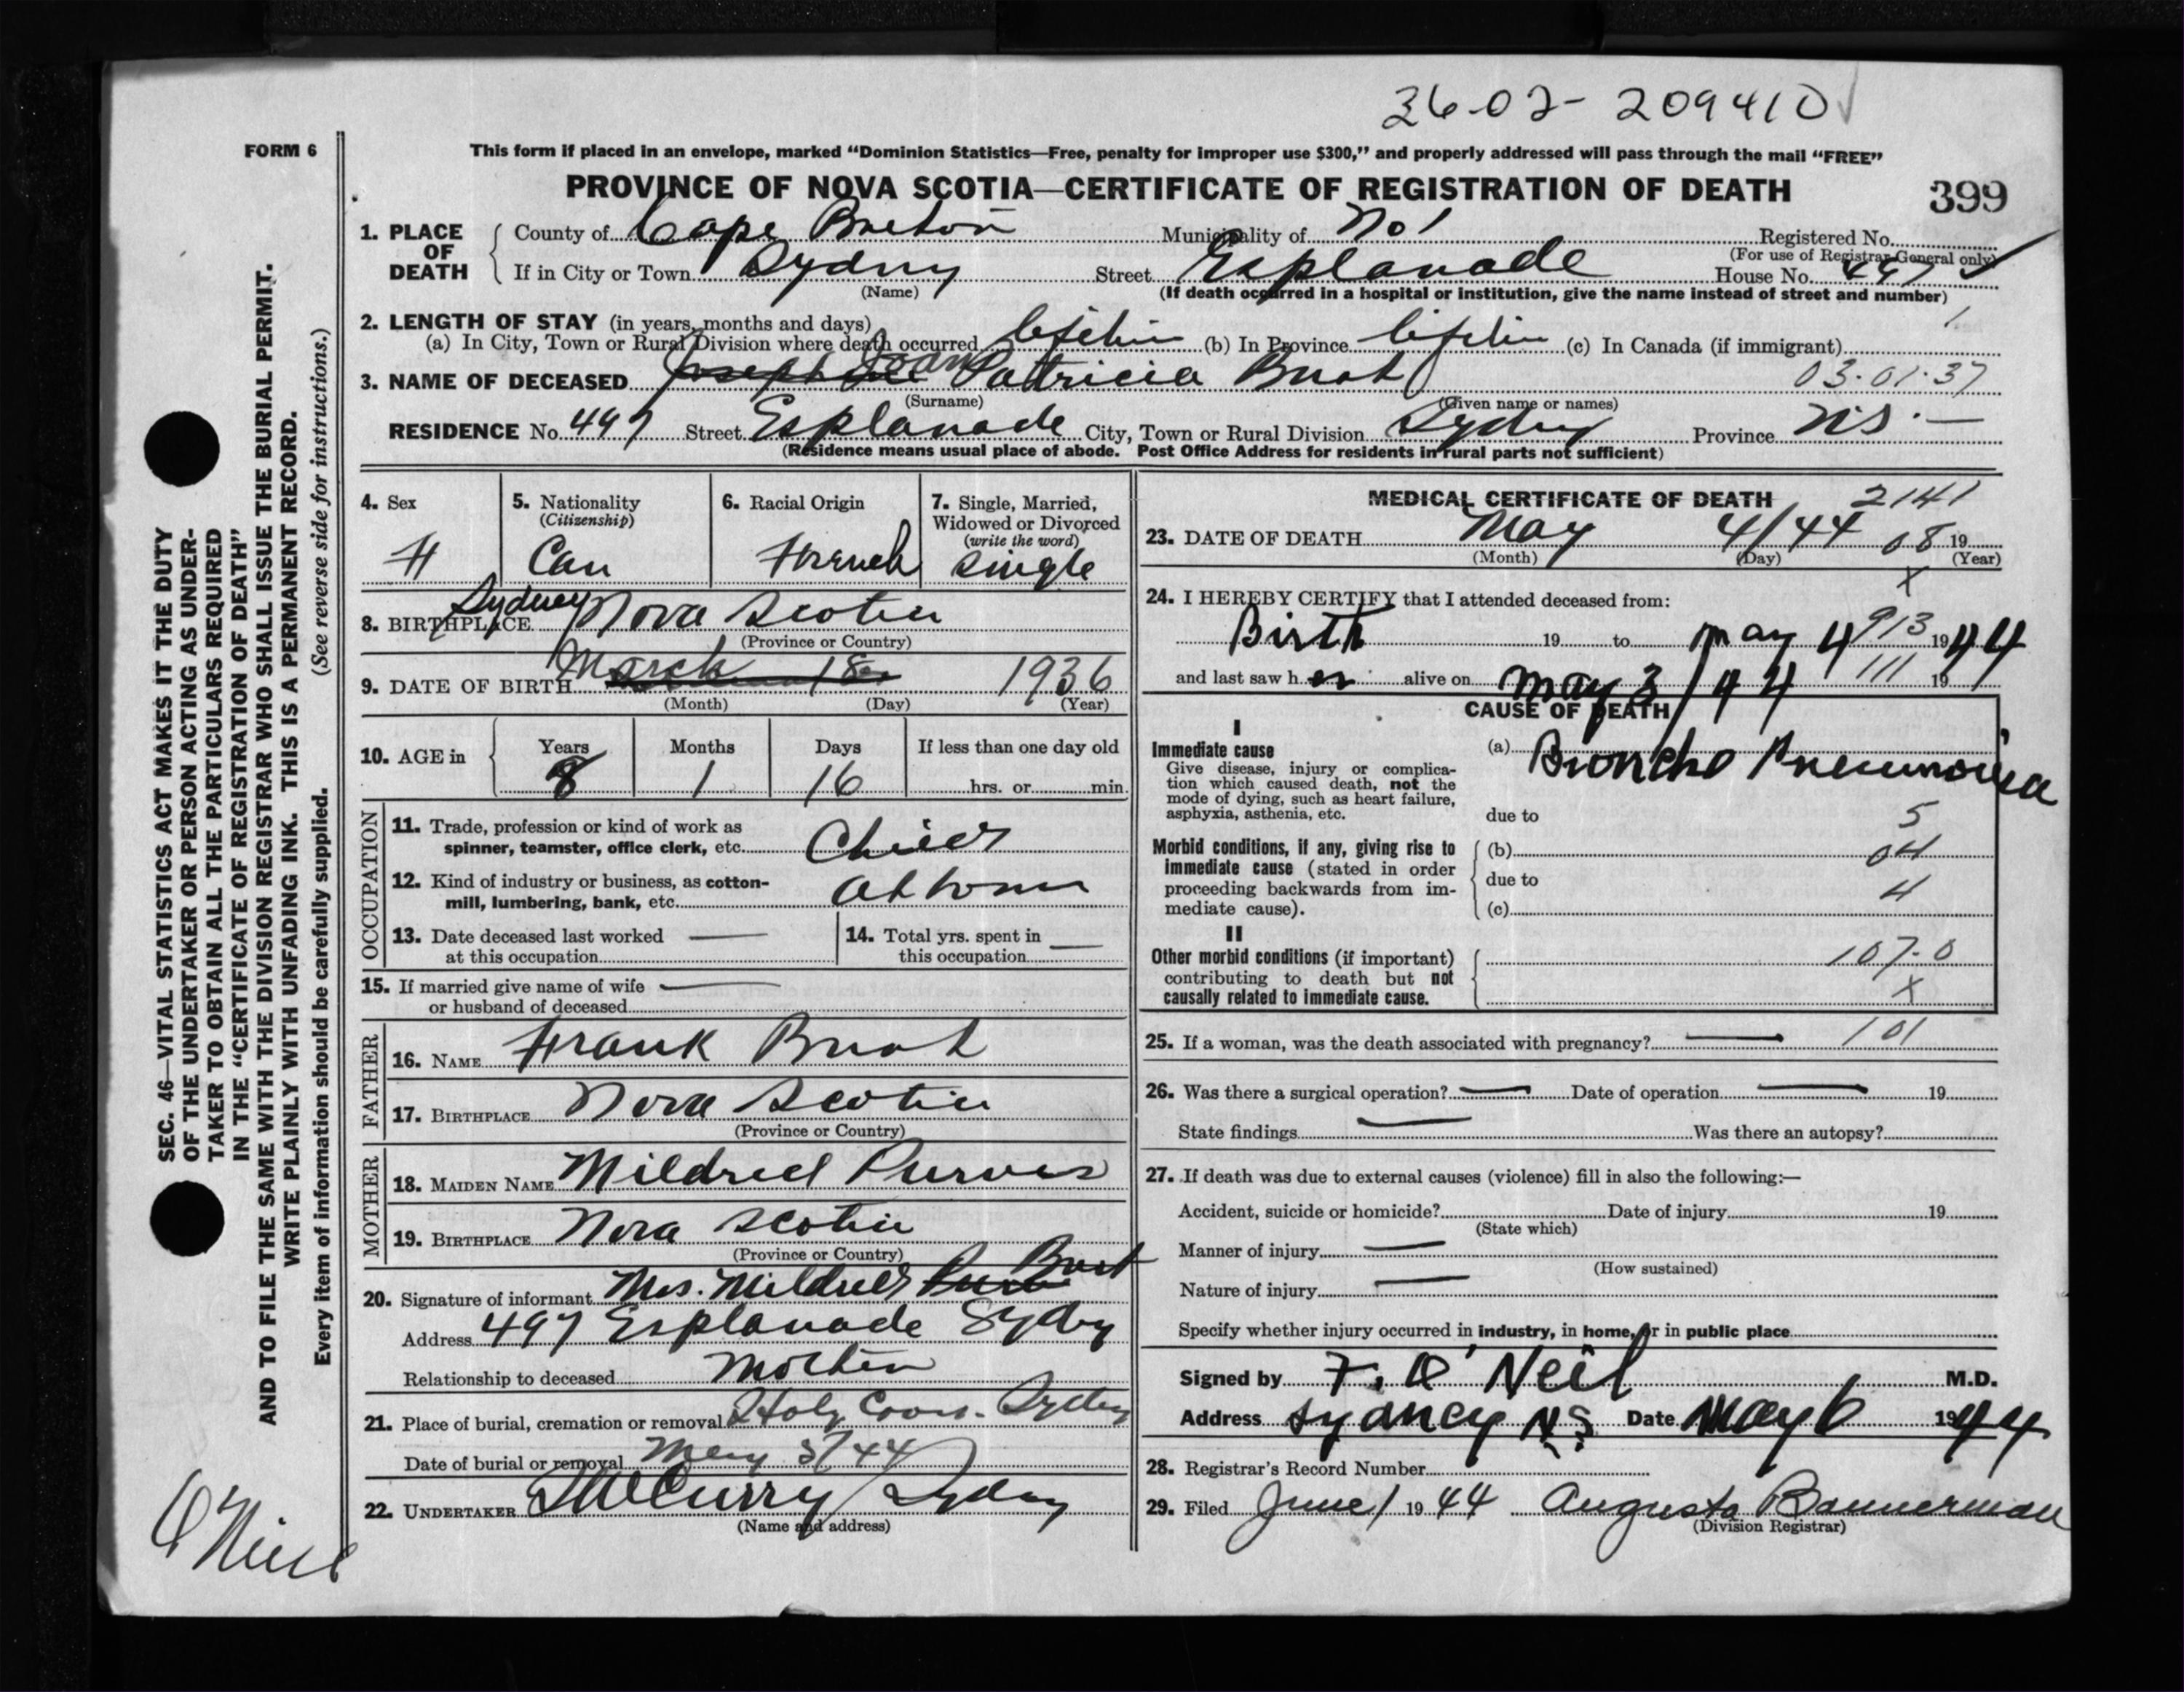 36-02-209410
FORM 6
This form if placed in an envelope, marked “Dominion Statistics—Free, penalty for improper use $300,” and properly addressed will pass through the mail “FREE”
PROVINCE OF NOVA SCOTIA—CERTIFICATE OF REGISTRATION OF DEATH
399
1. PLACE OF DEATH
County of Cape Breton Municipality of No 1 Registered No.
(For use of Registrar General only)
If in City or Town Sydney Street Esplanade House No. 497
(Name)
(If death occurred in a hospital or institution, give the name instead of street and number)
2. LENGTH OF STAY (in years, months and days)
(a) In City, Town or Rural Division where death occurred lifetime (b) In Province lifetime (c) In Canada (if immigrant)
3. NAME OF DECEASED Josephine Joan Patricia 03.01.37
(Surname) (Given name or names)
RESIDENCE No. 497 Street Esplanade City, Town or Rural Division Sydney Province N.S. —
(Residence means usual place of abode. Post Office Address for residents in rural parts not sufficient)
4. Sex F
5. Nationality (Citizenship) Can
6. Racial Origin French
7. Single, Married, Widowed or Divorced (write the word) Single
8. BIRTHPLACE Sydney Nova Scotia
(Province or Country)
9. DATE OF BIRTH March 18 1936
(Month) (Day) (Year)
10. AGE in Years 8 Months 1 Days 16 If less than one day old hrs. or min.
OCCUPATION
11. Trade, profession or kind of work as spinner, teamster, office clerk, etc. Child
12. Kind of industry or business, as cotton-mill, lumbering, bank, etc. At home
13. Date deceased last worked at this occupation —
14. Total yrs. spent in this occupation —
15. If married give name of wife or husband of deceased —
FATHER
16. NAME Frank
17. BIRTHPLACE Nova Scotia
(Province or Country)
MOTHER
18. MAIDEN NAME Mildred Purves
19. BIRTHPLACE Nova Scotia
(Province or Country)
20. Signature of informant Mrs. Mildred
Address 497 Esplanade Sydney
Relationship to deceased Mother
21. Place of burial, cremation or removal Holy Cross. Sydney
Date of burial or removal May 5/44
22. UNDERTAKER Curry Sydney
(Name and address)
MEDICAL CERTIFICATE OF DEATH 2141
23. DATE OF DEATH May 4/44 08 19
(Month) (Day) (Year)
x
24. I HEREBY CERTIFY that I attended deceased from:
Birth 19 to May 4 913 1944
and last saw her alive on May 3/44 111 19
CAUSE OF DEATH
I
Immediate cause
Give disease, injury or complication which caused death, not the mode of dying, such as heart failure, asphyxia, asthenia, etc.
(a) Broncho Pneumonia
due to 5
Morbid conditions, if any, giving rise to immediate cause (stated in order proceeding backwards from immediate cause).
(b) 04
due to 4
(c)
II
Other morbid conditions (if important) contributing to death but not causally related to immediate cause.
107-0
x
25. If a woman, was the death associated with pregnancy? — 101
26. Was there a surgical operation? — Date of operation — 19
State findings — Was there an autopsy?
27. If death was due to external causes (violence) fill in also the following:—
Accident, suicide or homicide? Date of injury 19
(State which)
Manner of injury —
(How sustained)
Nature of injury —
Specify whether injury occurred in industry, in home, or in public place
Signed by F. O'Neil M.D.
Address Sydney N.S. Date May 6 1944
28. Registrar's Record Number
29. Filed June 1 1944 Augusta Bannerman
(Division Registrar)
SEC. 46—VITAL STATISTICS ACT MAKES IT THE DUTY
OF THE UNDERTAKER OR PERSON ACTING AS UNDER-
TAKER TO OBTAIN ALL THE PARTICULARS REQUIRED
IN THE “CERTIFICATE OF REGISTRATION OF DEATH”
AND TO FILE THE SAME WITH THE DIVISION REGISTRAR WHO SHALL ISSUE THE BURIAL PERMIT.
WRITE PLAINLY WITH UNFADING INK. THIS IS A PERMANENT RECORD.
Every item of information should be carefully supplied. (See reverse side for instructions.)
O'Neil